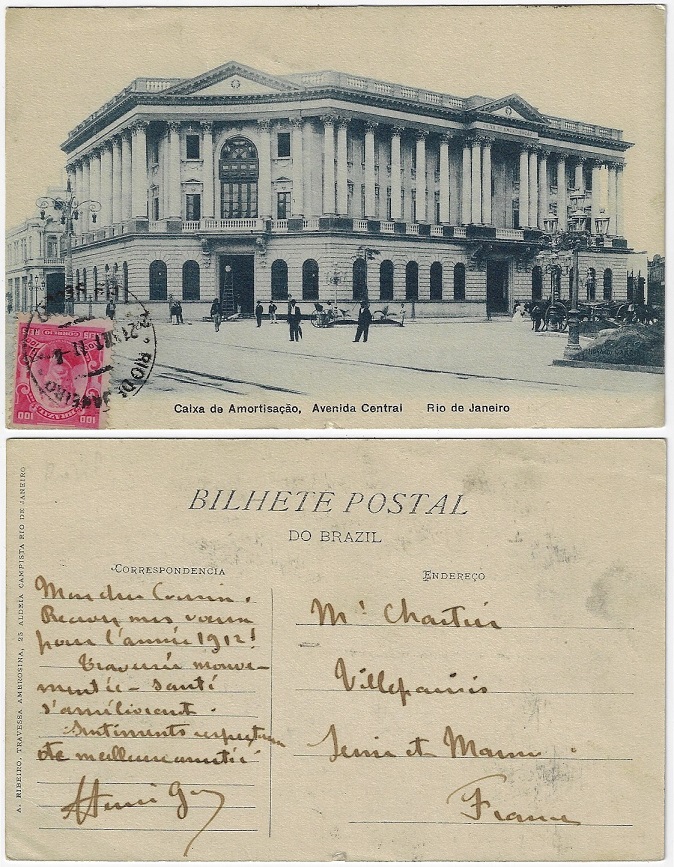 Caixa de Amortisação, Avenida Central Rio de Janeiro
100 100
RIO DE JANEIRO
BILHETE POSTAL
DO BRAZIL
CORRESPONDENCIA
ENDEREÇO
A. RIBEIRO, TRAVESSA AMBROSINA, 25 ALDEIA CAMPISTA RIO DE JANEIRO
Mon cher Cousin.
Recevez mes voeux
pour l'année 1912!
Traversée mouve-
mentée - santé
s'améliorant.
Sentiments respectueux
de meilleure amitié
Mr Chartier
Villeparisis
Seine et Marne
France